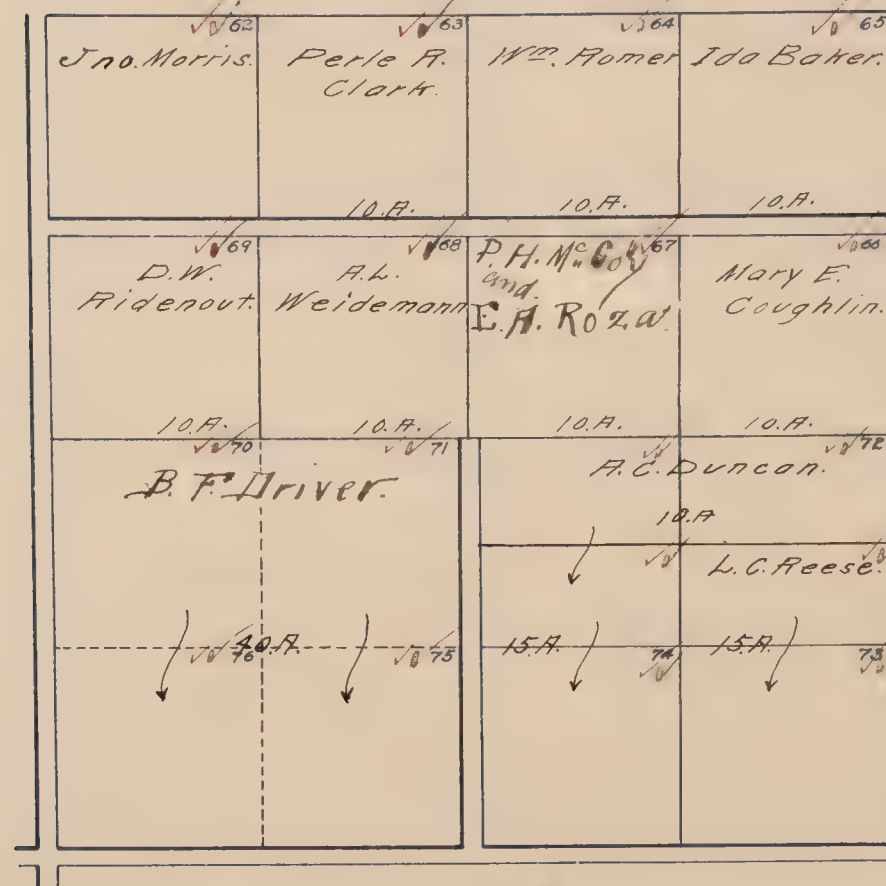 62
Jno. Morris.
63
Perle R.
Clark.
10.A.
64
Wm. Romer
10.A.
65
Ida Baker.
10.A.
69
D.W.
Ridenout.
10.A.
68
A.L.
Weidemann
10.A.
67
P. H. McCoy
and.
E. A. Roza.
10.A.
66
Mary E.
Coughlin.
10.A.
70
71
B. F. Driver.
40.A.
76
75
72
A.C. Duncan.
10.A
L.C. Reese.
15.A.
15.A.
74
73